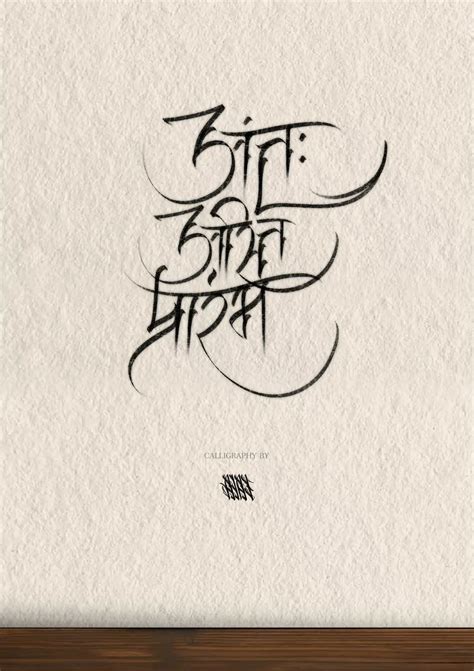 अंतः
अस्ति
प्रारंभ
CALLIGRAPHY BY